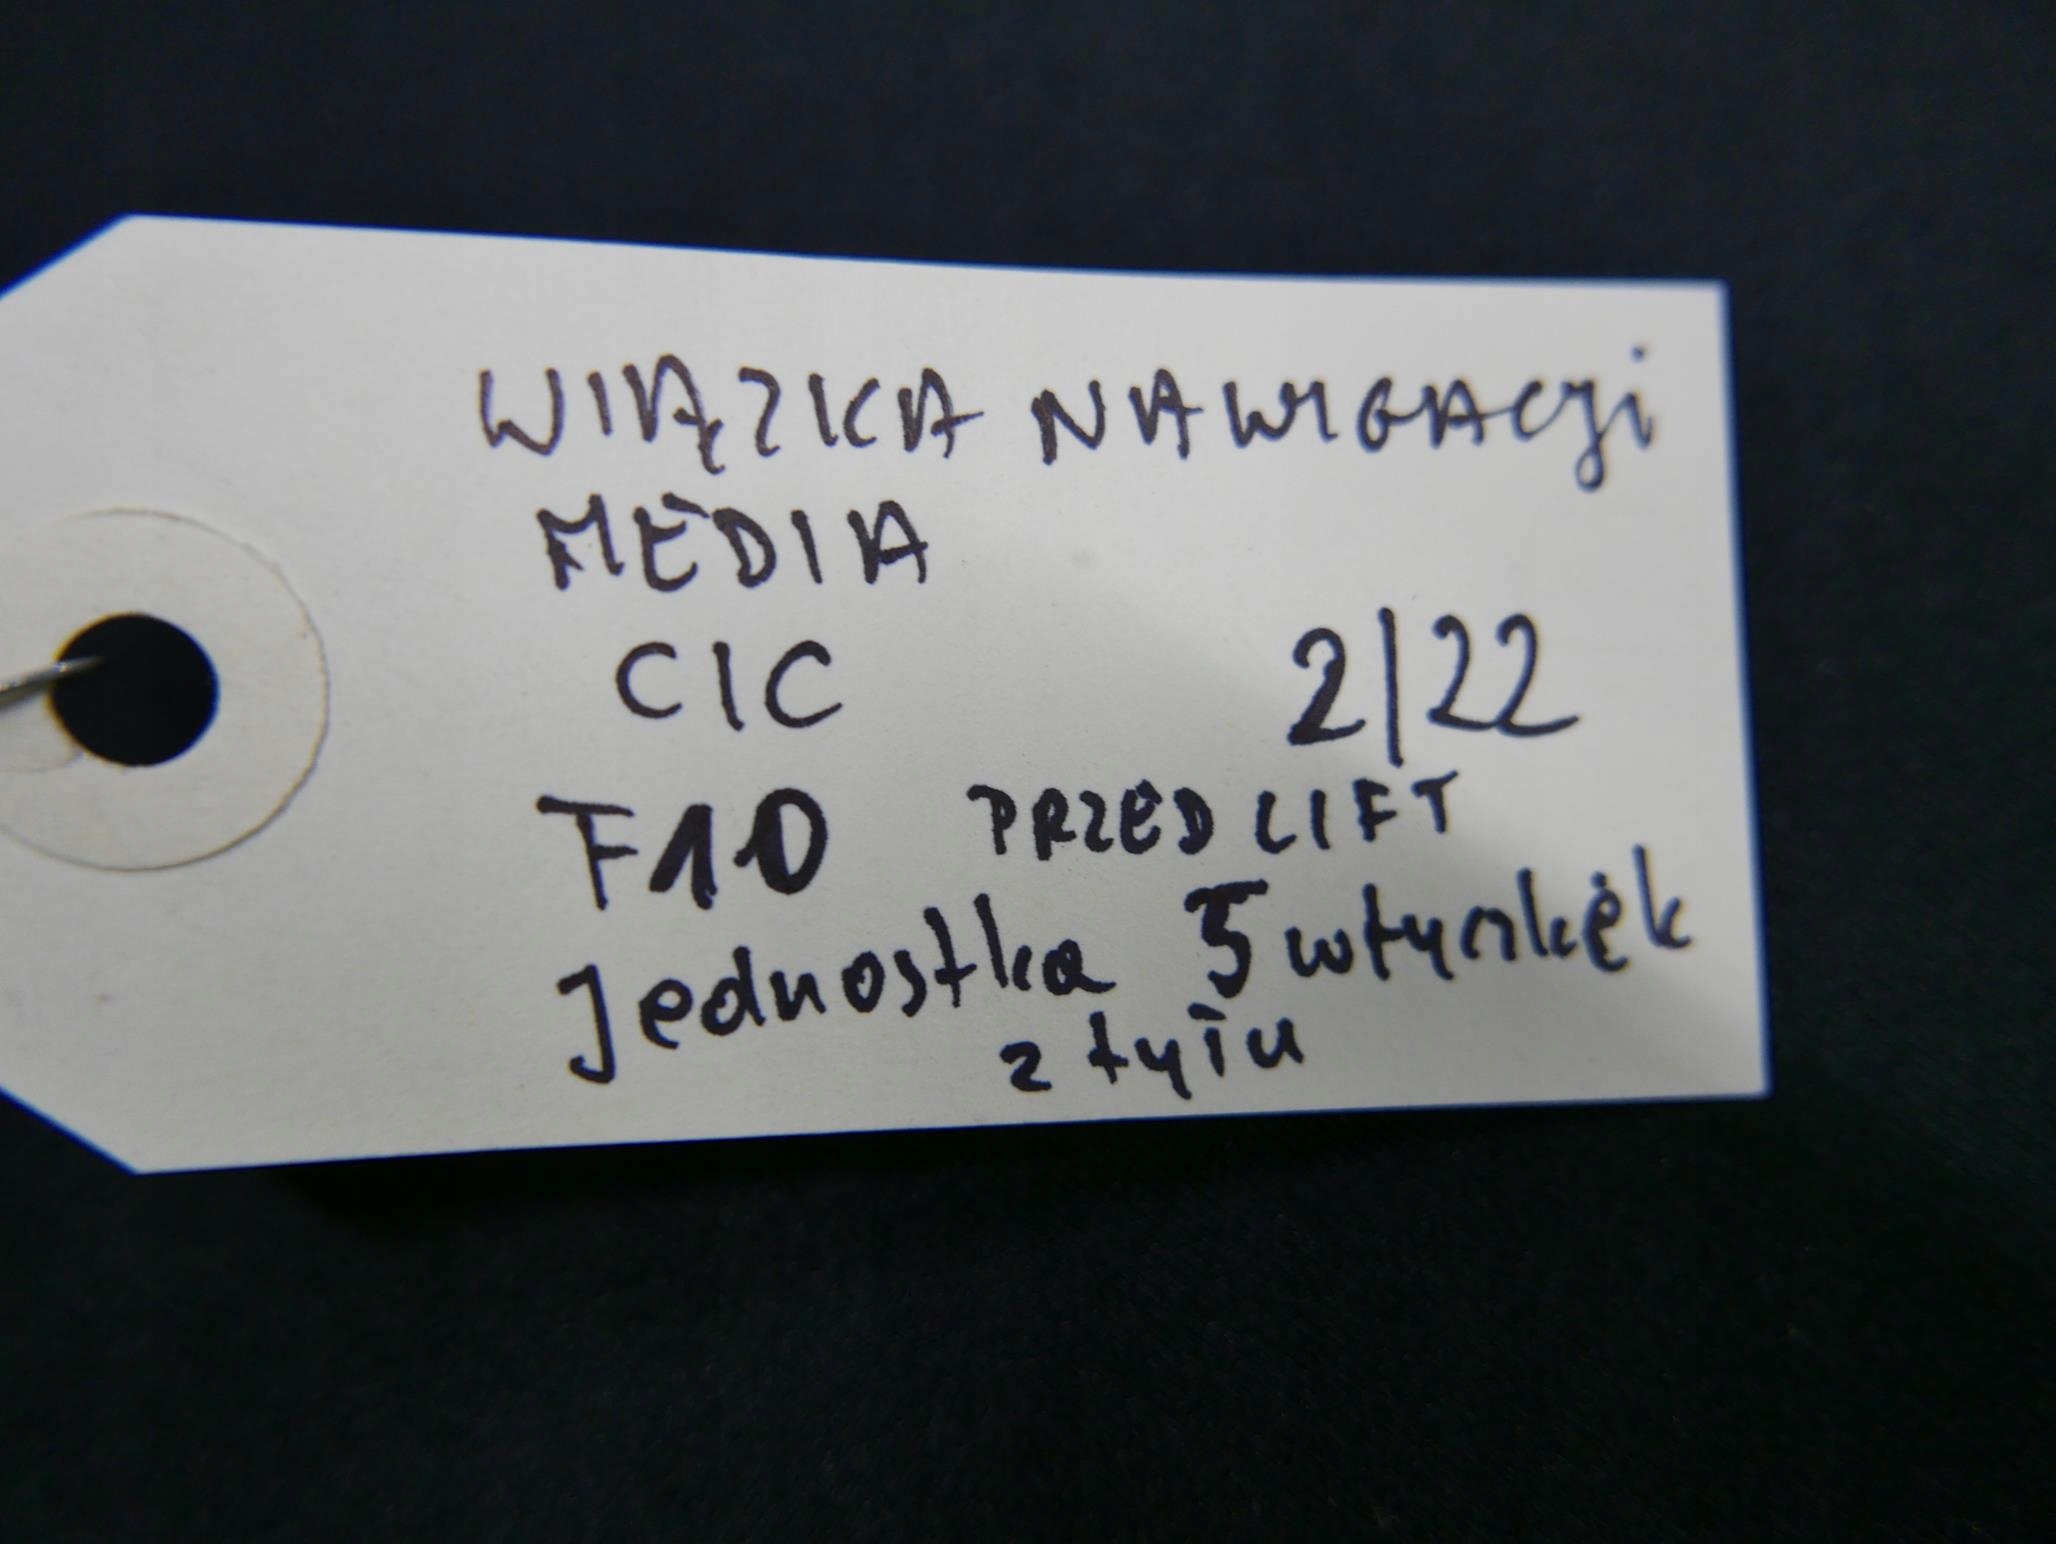 WIĄZKA NAWIGACji
MEDIA
CIC 2/22
F10 PRZED LIFT
Jednostka 5 wtyczkek
z tyłu